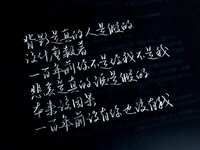 背影是真的人是假的
没什麼执着
一百年前你不是你我不是我
悲哀是真的泪是假的
本来没因果
一百年前没有你也没有我